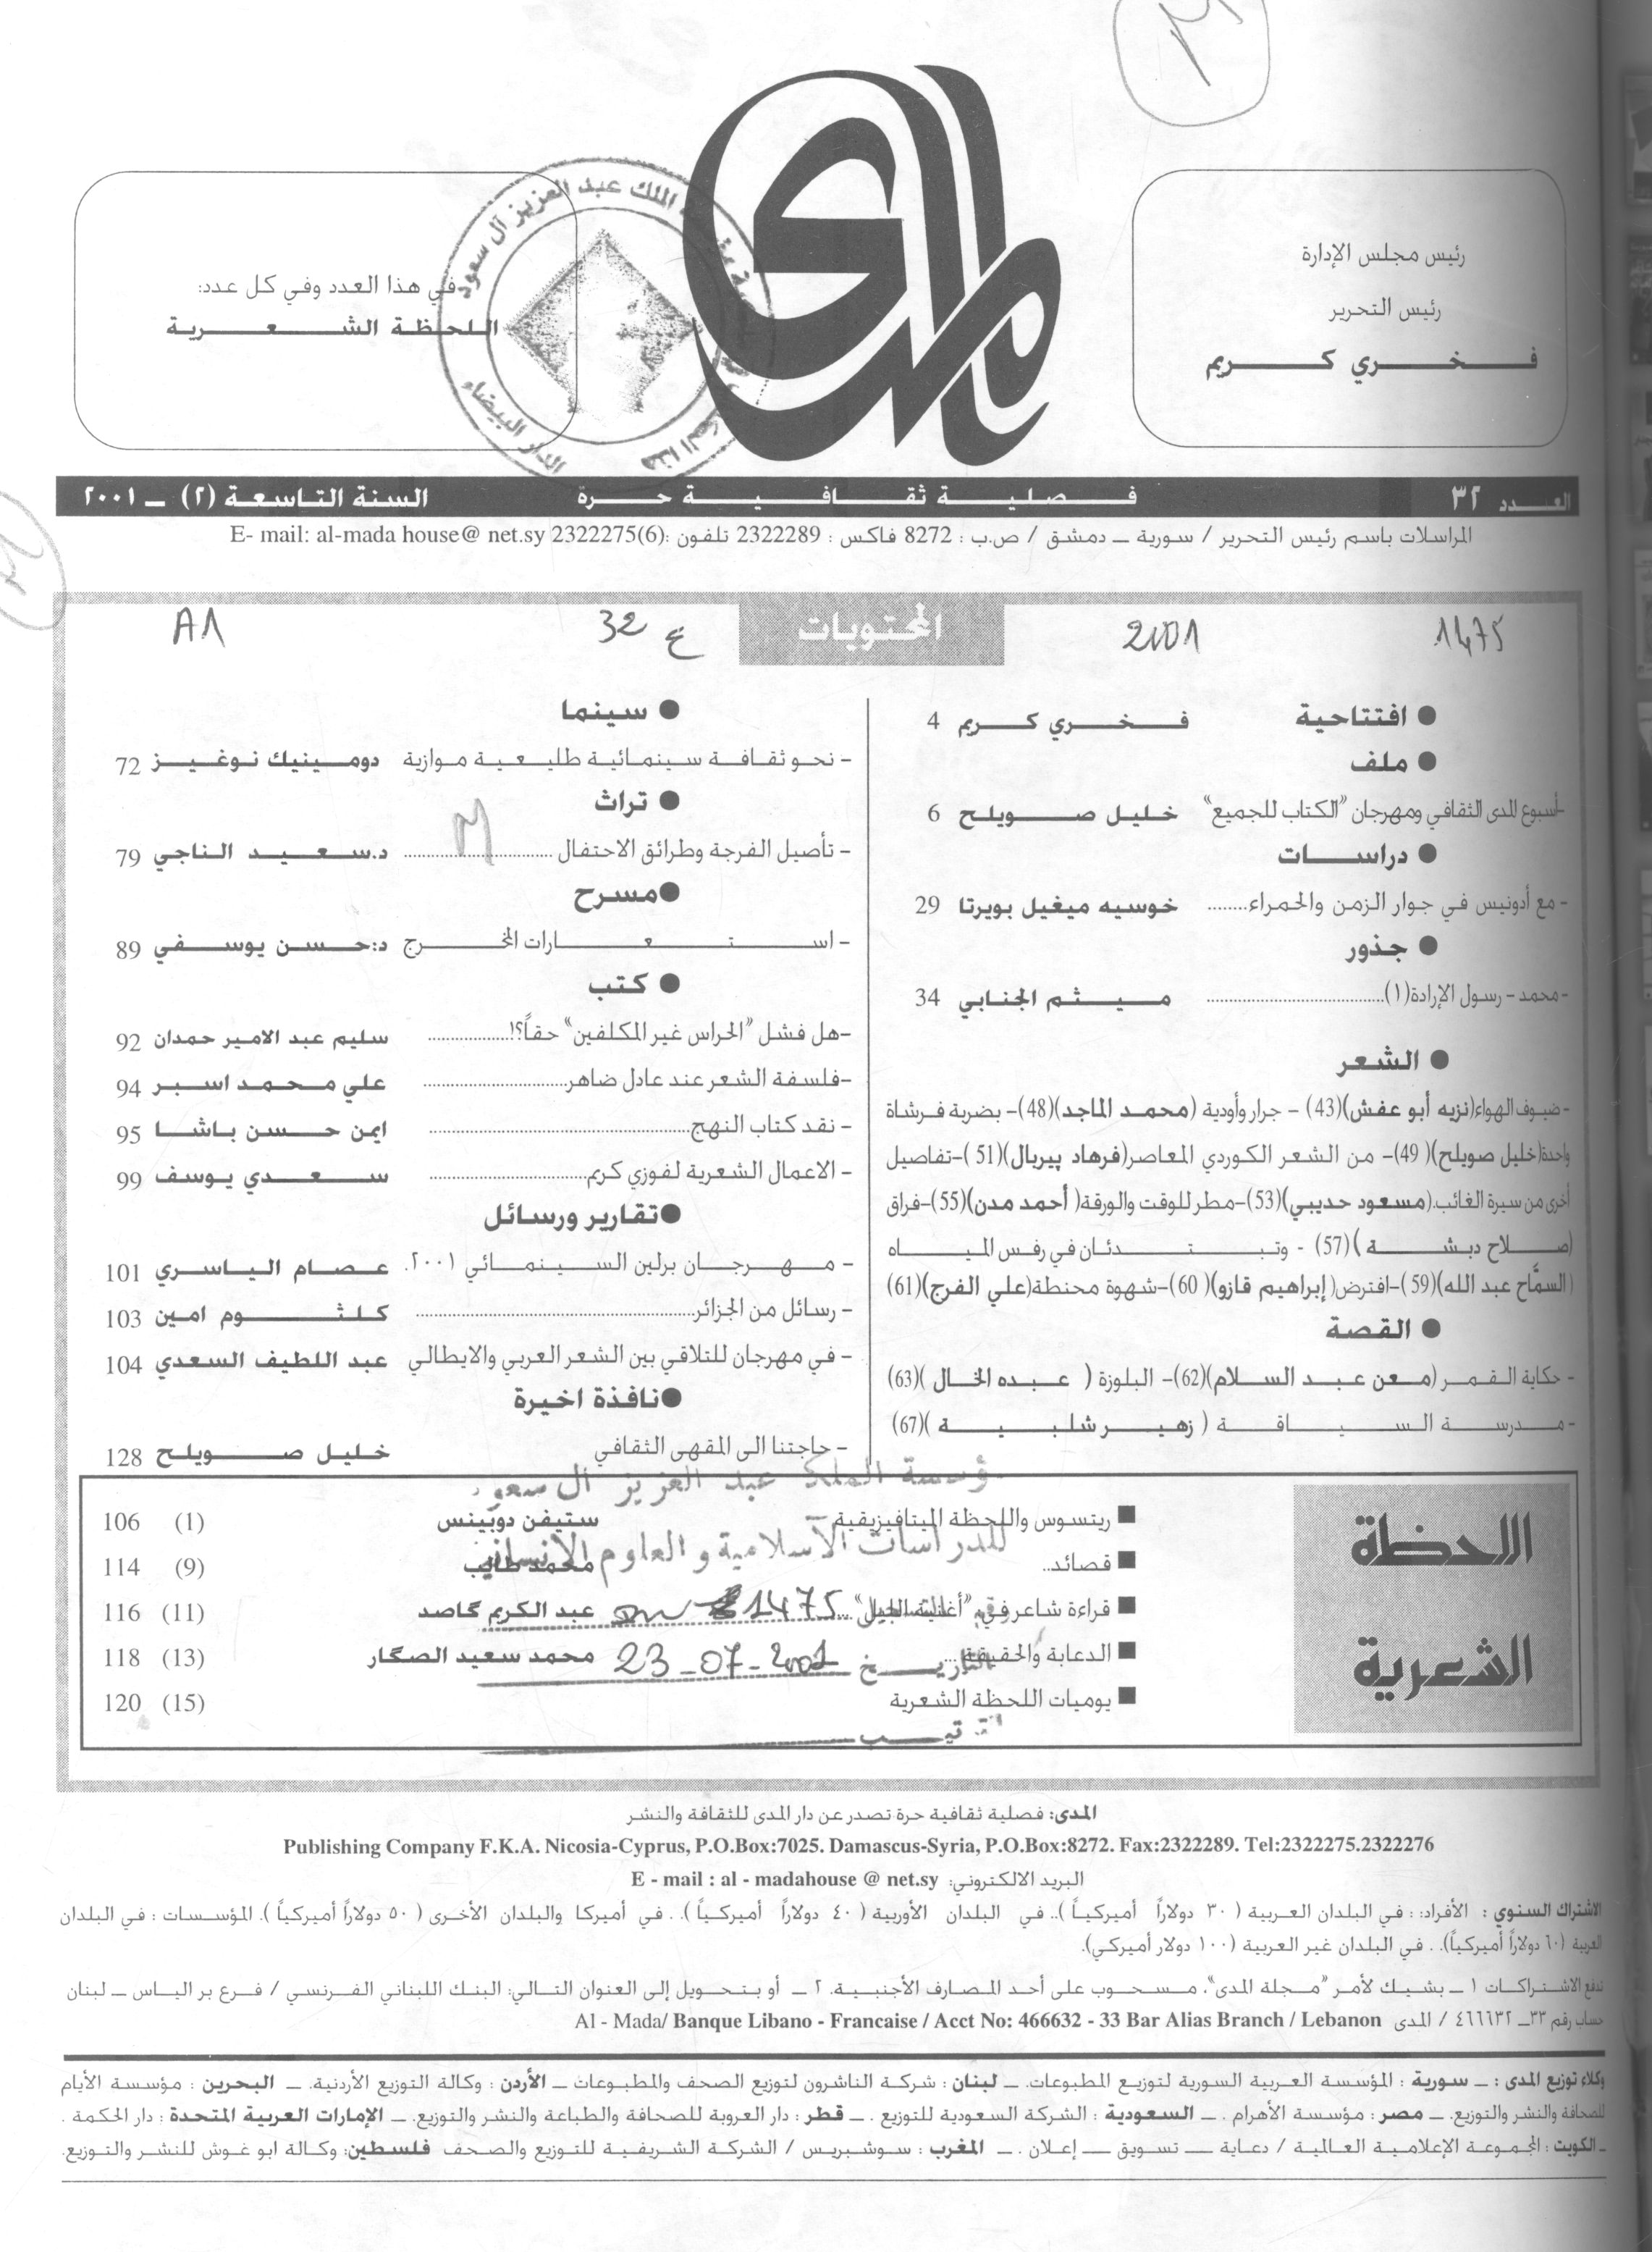 المدى
رئيس مجلس الإدارة
رئيس التحرير
فخري كريم
في هذا العدد وفي كل عدد:
اللحظة الشعرية
الملك عبد العزيز آل سعود
الدار البيضاء
العدد ٣٢ فصلية ثقافية حرة السنة التاسعة (٢) ــ ٢٠٠١
المراسلات باسم رئيس التحرير / سورية ــ دمشق / ص.ب : 8272 فاكس : 2322289 تلفون :(6)2322275 E- mail: al-mada house@ net.sy
المحتويات
1475 2001 ع 32 A1
● افتتاحية فخري كريم 4
● ملف
-أسبوع المدى الثقافي ومهرجان "الكتاب للجميع" خليل صويلح 6
● دراسات
- مع أدونيس في جوار الزمن والحمراء........ خوسيه ميغيل بويرتا 29
● جذور
- محمد - رسول الإرادة(١)........ ميثم الجنابي 34
● الشعر
- ضيوف الهواء(نزيه أبو عفش)(43) - جرار وأودية (محمد الماجد)(48)- بضربة فرشاة
واحدة(خليل صويلح)( 49)- من الشعر الكوردي المعاصر(فرهاد پيربال)(51 )-تفاصيل
أخرى من سيرة الغائب.(مسعود حديبي)(53)-مطر للوقت والورقة( أحمد مدن)(55)-فراق
(صلاح دبشة )(57) - وتبتدئان في رفس المياه
(السمَّاح عبد الله)(59)-افترض(إبراهيم قازو)( 60)-شهوة محنطة(علي الفرج)(61)
● القصة
- حكاية القمر (معن عبد السلام)(62)- البلوزة ( عبده الخال )(63)
- مدرسة السياقة ( زهير شلبية )(67)
● سينما
- نحو ثقافة سينمائية طليعية موازية دومينيك نوغيز 72
● تراث
- تأصيل الفرجة وطرائق الاحتفال ........ د.سعيد الناجي 79
●مسرح
- استعارات المخرج د:حسن يوسفي 89
● كتب
-هل فشل "الحراس غير المكلفين" حقاً؟!........ سليم عبد الامير حمدان 92
-فلسفة الشعر عند عادل ضاهر........ علي محمد اسبر 94
- نقد كتاب النهج........ ايمن حسن باشا 95
- الاعمال الشعرية لفوزي كريم........ سعدي يوسف 99
●تقارير ورسائل
- مهرجان برلين السينمائي ٢٠٠١. عصام الياسري 101
- رسائل من الجزائر........ كلثوم امين 103
- في مهرجان للتلاقي بين الشعر العربي والايطالي عبد اللطيف السعدي 104
●نافذة اخيرة
- حاجتنا الى المقهى الثقافي خليل صويلح 128
اللحظة
الشعرية
■ ريتسوس واللحظة الميتافيزيقية ستيفن دوبينس (1) 106
■ قصائد.. محمد طالب (9) 114
■ قراءة شاعر في "أغنية الجبل"... عبد الكريم گاصد (11) 116
■ الدعابة والحقيقة... محمد سعيد الصگار (13) 118
■ يوميات اللحظة الشعرية (15) 120
مؤسسة الملك عبد العزيز آل سعود
للدراسات الاسلامية والعلوم الانسانية
1475
التاريخ 23-07-2001
المدى: فصلية ثقافية حرة تصدر عن دار المدى للثقافة والنشر
Publishing Company F.K.A. Nicosia-Cyprus, P.O.Box:7025. Damascus-Syria, P.O.Box:8272. Fax:2322289. Tel:2322275.2322276
البريد الالكتروني: E - mail : al - madahouse @ net.sy
الاشتراك السنوي : الأفراد: : في البلدان العربية ( ٣٠ دولاراً أميركياً ).. في البلدان الأوربية ( ٤٠ دولاراً أميركياً ). . في أميركا والبلدان الأخرى ( ٥٠ دولاراً أميركياً ). المؤسسات : في البلدان
العربية (٦٠ دولاراً أميركياً). . في البلدان غير العربية (١٠٠ دولار أميركي).
تدفع الاشتراكات ١ ــ بشيك لأمر "مجلة المدى"، مسحوب على أحد المصارف الأجنبية. ٢ ــ أو بتحويل إلى العنوان التالي: البنك اللبناني الفرنسي / فرع بر الياس ــ لبنان
حساب رقم ٣٣ــ ٤٦٦٦٣٢ / المدى Al - Mada/ Banque Libano - Francaise / Acct No: 466632 - 33 Bar Alias Branch / Lebanon
وكلاء توزيع المدى : ــ سورية : المؤسسة العربية السورية لتوزيع المطبوعات. ــ لبنان : شركة الناشرون لتوزيع الصحف والمطبوعات ــ الأردن : وكالة التوزيع الأردنية. ــ البحرين : مؤسسة الأيام
للصحافة والنشر والتوزيع. ــ مصر : مؤسسة الأهرام . ــ السعودية : الشركة السعودية للتوزيع . ــ قطر : دار العروبة للصحافة والطباعة والنشر والتوزيع. ــ الإمارات العربية المتحدة : دار الحكمة .
ــ الكويت : المجموعة الإعلامية العالمية / دعاية ــ تسويق ــ إعلان . ــ المغرب : سوشبريس / الشركة الشريفية للتوزيع والصحف فلسطين: وكالة ابو غوش للنشر والتوزيع.